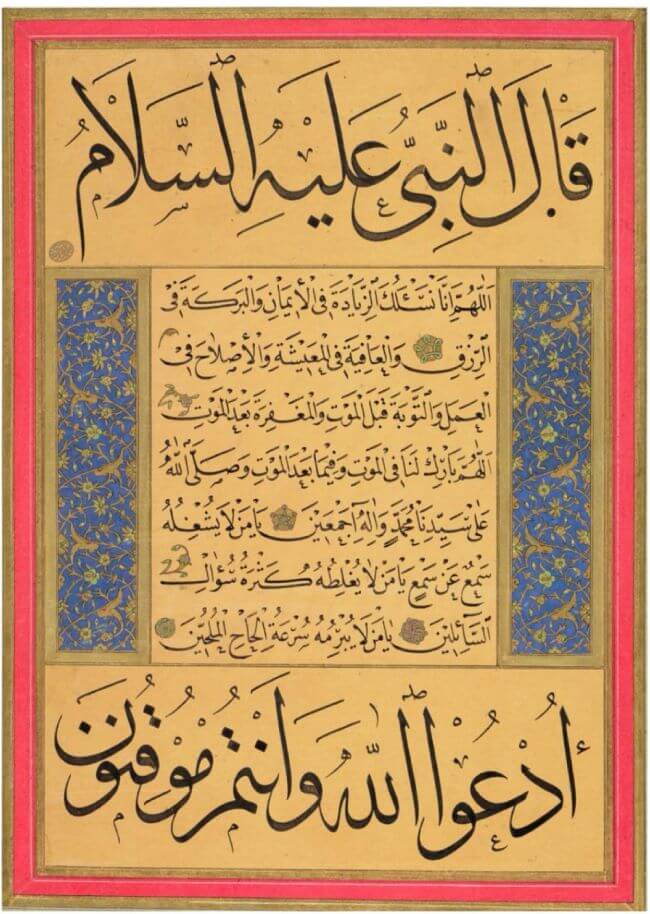 قَالَ النَّبِيُّ عَلَيْهِ السَّلَامُ
اَللّٰهُمَّ اِنَّا نَسْئَلُكَ الزِّيَادَةَ فِى الْاِيمَانِ وَالْبَرَكَةَ فِى
الرِّزْقِ وَالْعَافِيَةَ فِى الْمَعِيشَةِ وَالْاِصْلَاحَ فِى
الْعَمَلِ وَالتَّوْبَةَ قَبْلَ الْمَوْتِ وَالْمَغْفِرَةَ بَعْدَ الْمَوْتِ
اَللّٰهُمَّ بَارِكْ لَنَا فِى الْمَوْتِ وَفِيمَا بَعْدَ الْمَوْتِ وَصَلَّى اللّٰهُ
عَلٰى سَيِّدِنَا مُحَمَّدٍ وَاٰلِهِ اَجْمَعِينَ يَا مَنْ لَا يَشْغَلُهُ
سَمْعٌ عَنْ سَمْعٍ يَا مَنْ لَا يُغَلِّطُهُ كَثْرَةُ سُؤَالِ
السَّائِلِينَ يَا مَنْ لَا يُبْرِمُهُ سُرْعَةُ اِلْحَاحِ الْمُلِحِّينَ
اُدْعُوا اللّٰهَ وَاَنْتُمْ مُوقِنُونَ